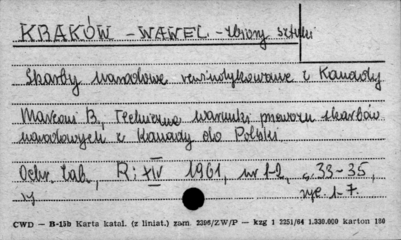 KRAKÓW - WAWEL - zbiory sztuki
Skarby narodowe rewindykowane z Kanady
Marconi B., Techniczne warunki przewozu skarbów
narodowych z Kanady do Polski.
Ochr. Zab., R: XIV 1961, nr 1-2, s. 33-35,
ryc. 1-7.
CWD — B-15b Karta katal. (z liniat.) zam. 2396/ZW/P — kzg 1 3251/64 1.330.000 karton 180